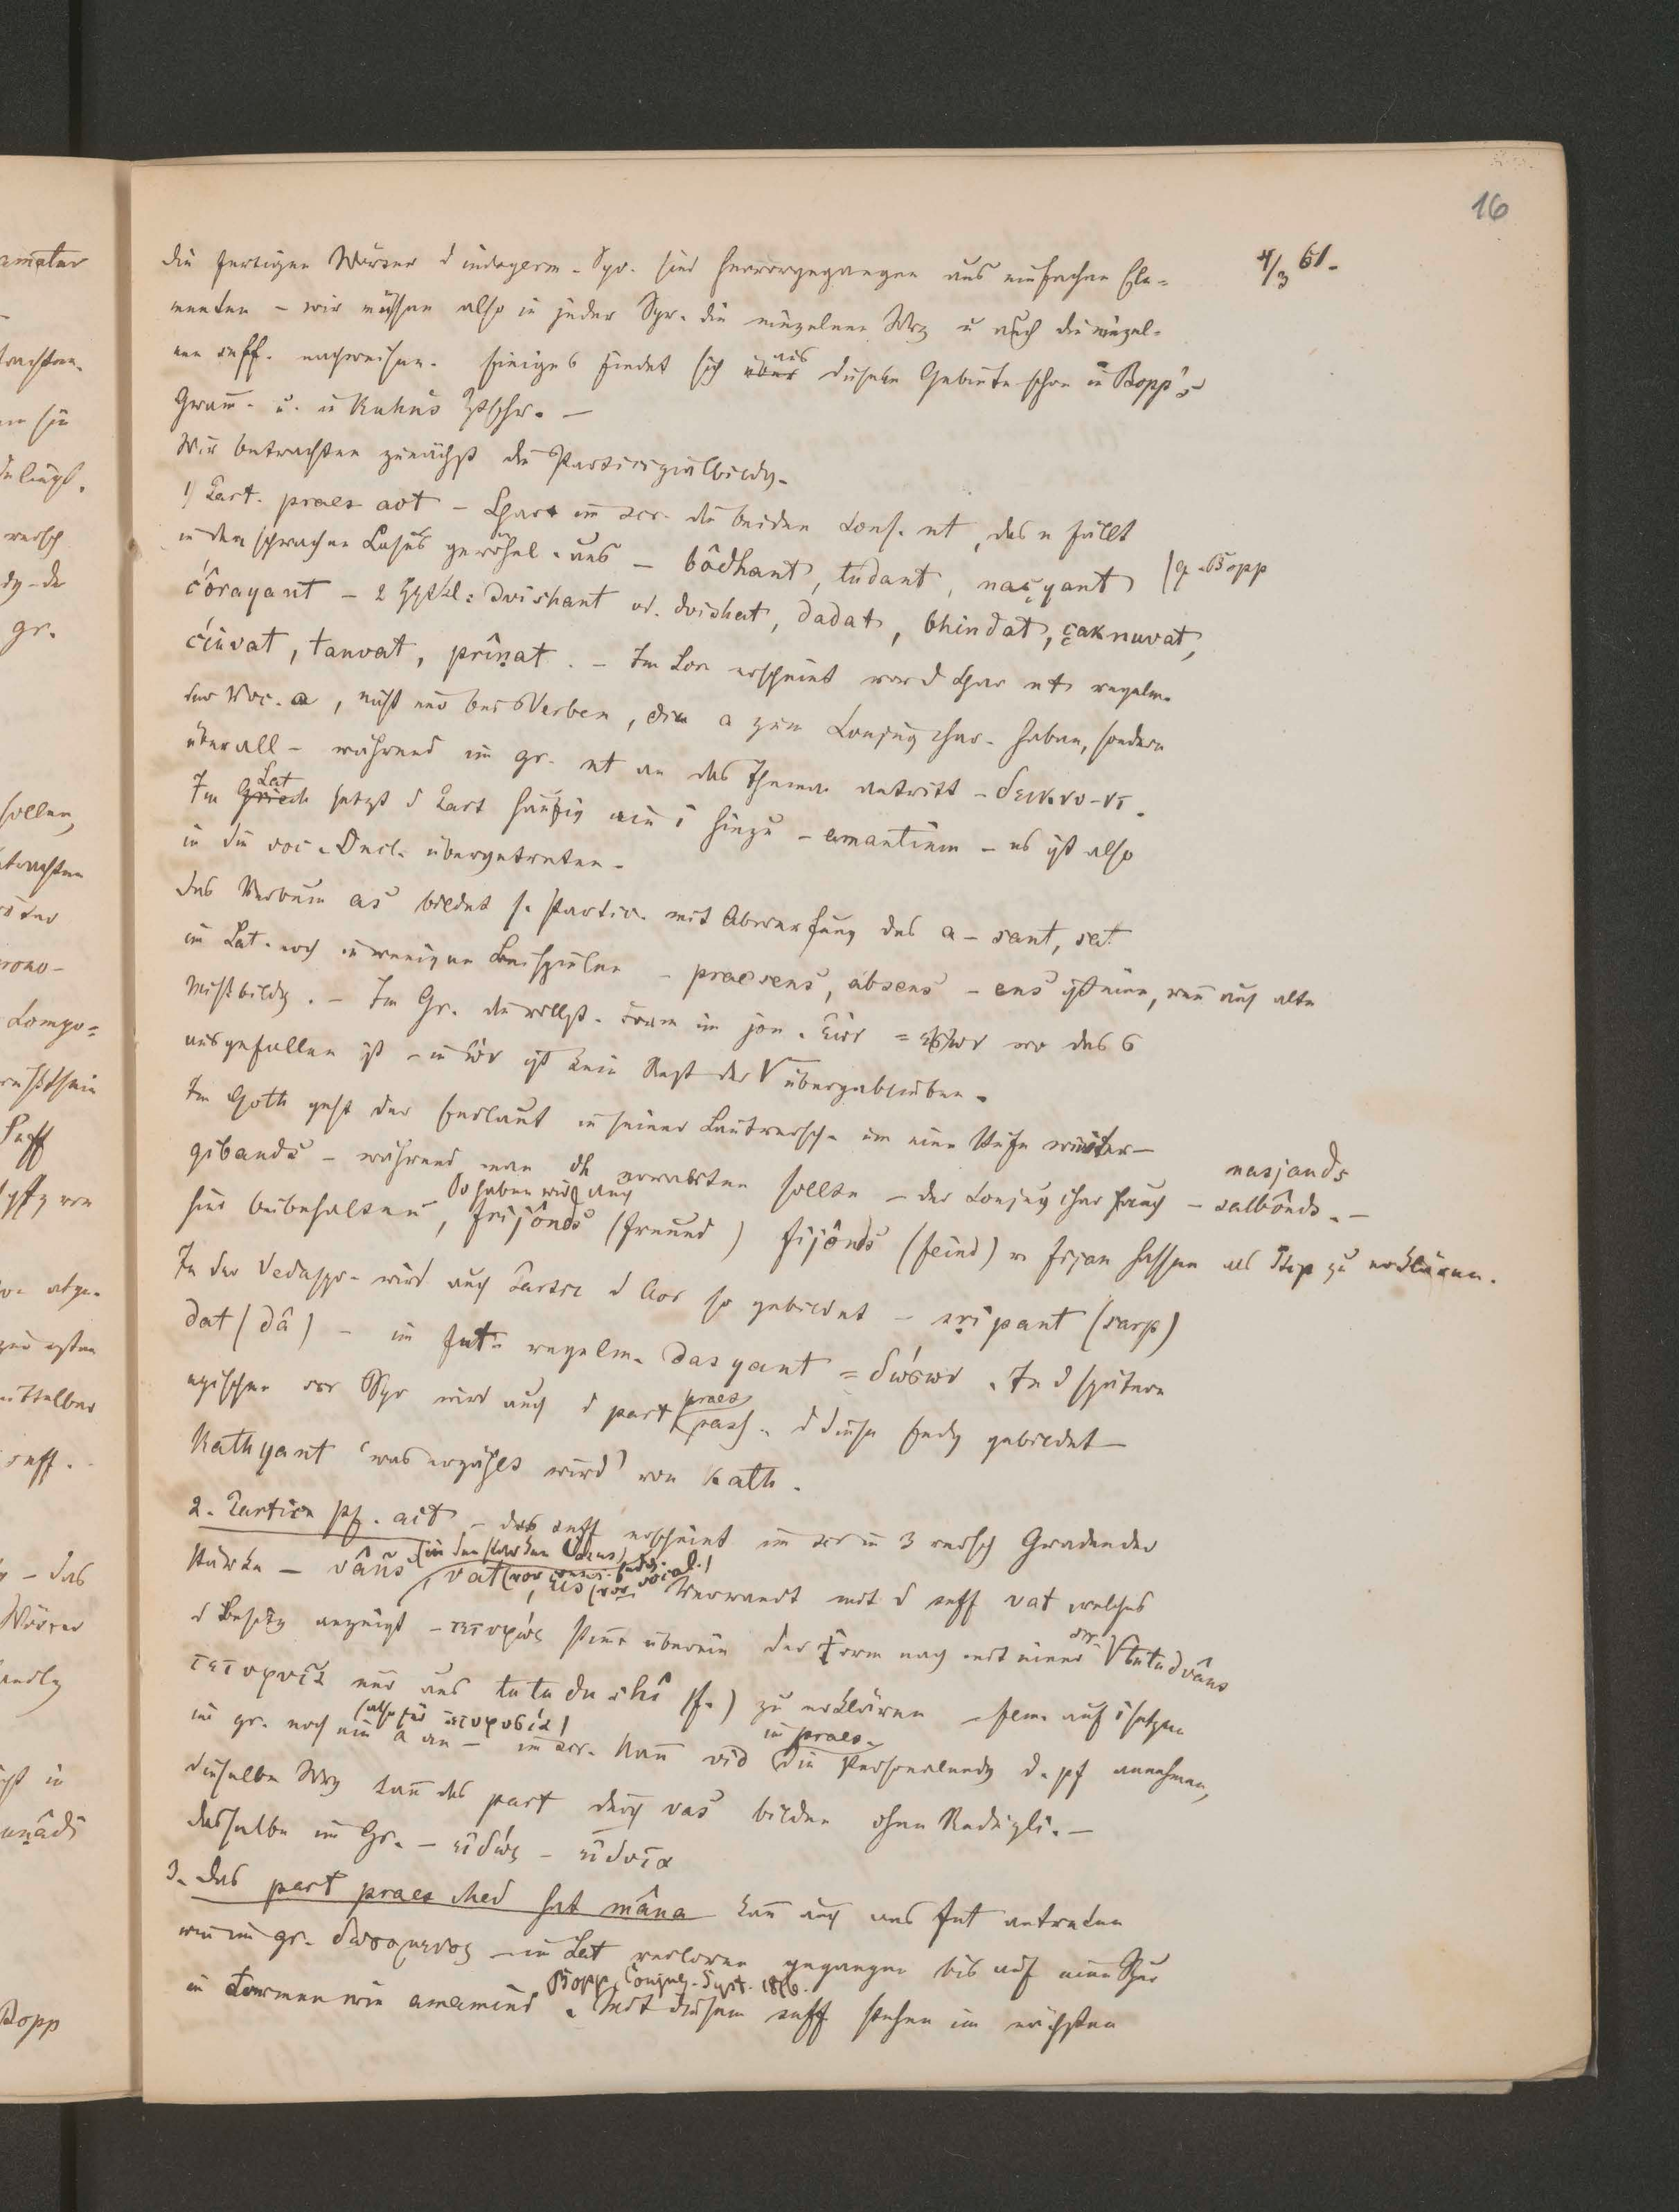 16
4/3 61.
die fertigen Wörter d indogerm. Spr. sind hervorgegangen aus einfachen Ele-
menten – wir müssen also in jeder Spr. die einzelnen Wrz u auch die einzel-
nen suff. nachweisen. Einiges findet sich über aus diesem Gebiete schon in Bopp's
Gram. u. in Kuhn's Ztschr. –
Wir betrachten zunächst die Participialbildg.
1) Part. praes act – Char im scr. die beiden Cons. nt, das n fällt
in den schwachen Casus gewöhnl. aus – bôdhant, tudant, naçyant (q. Bopp
c'ôrayant – 2 Hptkl: dvishant od. dvishat, dadat, bhindat, çaknuvat,
tanvat, prînat. – Im Scr erscheint vor d Char nt regelm.
der Voc. a, nicht nur bei Verben, die a zum Conjug char. haben, sondern
überall – während im gr. nt an das Thema antritt – δεικνυ-ντ.
Im Griech Lat setzt d Part häufig ein i hinzu – amantium – es ist also
in die voc. Decl. übergetreten.
Das Verbum as bildet s. Partic. mit Abwerfung des a – sant, sat
im Lat. noch in wenigen Beispielen – praesens, absens – ens ist eine, wenn auch alte
Missbildg. – Im Gr. die vollst. Form im jon. ἐών = ἐσων wo das σ
ausgefallen ist – in ὤν ist kein Rest der √ übergeblieben.
Im Goth geht der Endlaut in seiner Lautversch. um eine Stufe weiter –
gibands – während man dh erwarten sollte – der Conjug char auch – salbônds. – nasjands
hier beibehalten, So haben wir auch frijônds (Freund) fijônds (feind) v. fijan hassen als Ptcp zu erklären.
In der Vedaspr. wird auch Partic d Aor so gebildet – sripant (sarp)
dat (dâ) – im Fut. regelm. dasyant = δώσων. In d spätern
epischen scr Spr wird auch d part praes pass. d diese Endg gebildet –
Kathyant 'was erzählt wird' von kath.
2. Particip pf. act – das suff erscheint im scr in 3 versch Graden der
Stärke – vâns (in den starken Casus), vat (vor cons. Endg.), us (vor vocal.) Verwandt mit d suff vat welches
d Besitz anzeigt – τετυφώς stimt überein der Form nach mit einer scr. √ tutudvâns
τετυφυῖα nur aus tutudushî (f.) zu erklären – fem. auf i setzen
im gr. noch ein a an – (also für τετυφυσία) im scr. kann vid im praes. die Personalendg d. pf annehmen,
dieselbe Wrz kann das part durch vas bilden ohne Redupli. –
dasselbe im Gr. – εἰδώς – εἰδυῖα
3. Das part praes Med hat mâna kann auch ans Fut antreten
wie im gr. δωσομενος – im Lat verloren gegangen bis auf eine Spur
in Formen wie amamini Bopp, Conjug. Syst. 1816. Mit diesem suff stehen im nächsten